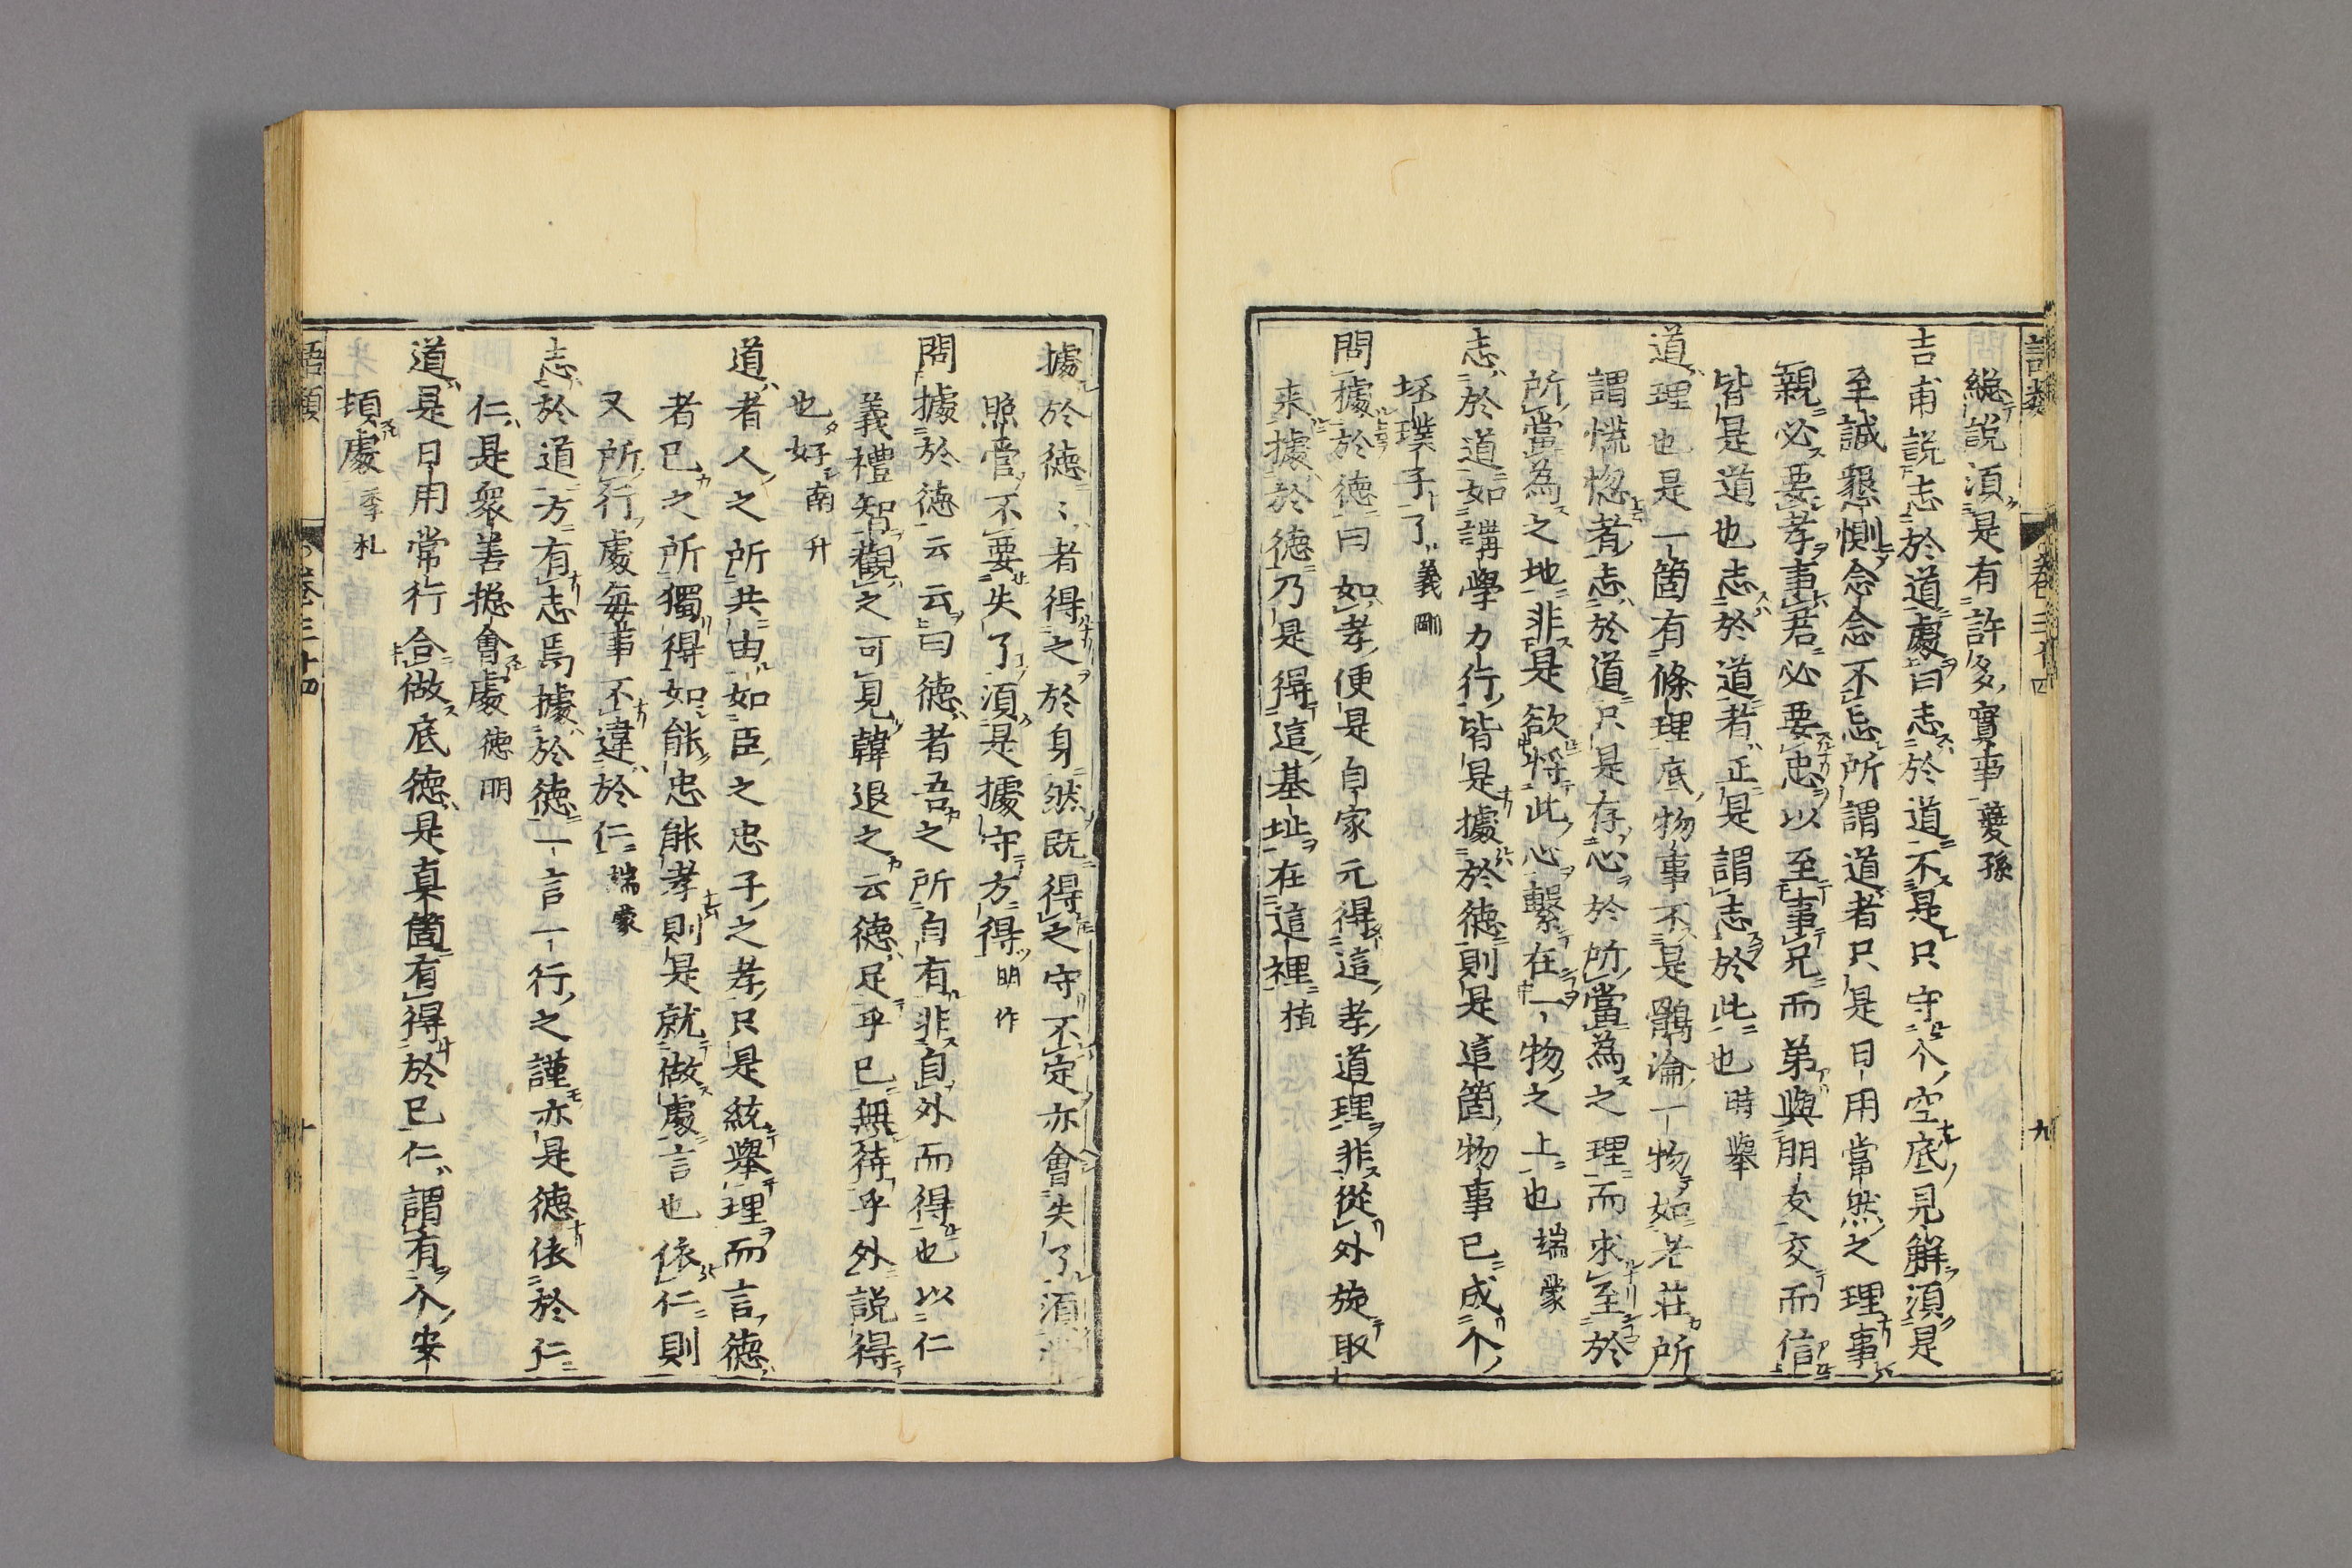 語類
卷三十四
九
纔說須是有許多實事 夔孫
吉甫說志於道處曰志於道不是只守个空底見解須是
至誠懇惻念念不忘所謂道者只是日用當然之理事
親必要孝事君必要忠以至事兄而弟與朋友交而信
皆是道也志於道者正是謂志於此也 時舉
道理也是一箇有條理底物事不是鶻淪一物如老莊所
謂慌惚者志於道只是存心於所當為之理而求至於
所當為之地非是欲將此心繫在一物之上也 端蒙
志於道如講學力行皆是據於德則是這箇物事已成个
坯璞子了 義剛
問據於德曰如孝便是自家元得這孝道理非從外旋取
来據於德乃是得這基址在這裡 植
據於德〻者得之於身然既得之守不定亦會失了須
照管不要失了須是據守方得 明作
問據於德云云曰德者吾之所自有非自外而得也以仁
義禮智觀之可見韓退之云德足乎己無待乎外說得
也好 南升
道者人之所共由如臣之忠子之孝只是統舉理而言德
者已之所獨得如能忠能孝則是就做處言也依仁則
又所行處每事不違於仁 端蒙
志於道方有志焉據於德一言一行之謹亦是德依於仁
仁是衆善總會處 德明
道是日用常行合做底德是真箇有得於已仁謂有个安
頓處 季札
語類
卷三十四
十